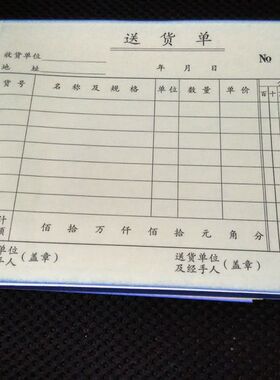 送货单
收货单位
No
地 址
年 月 日
货号 名称及规格 单位 数量 单价 百 十
佰 拾 万 仟 佰 拾 元 角 分
单位 (盖章)
手人
送货单位 (盖章)
及经手人